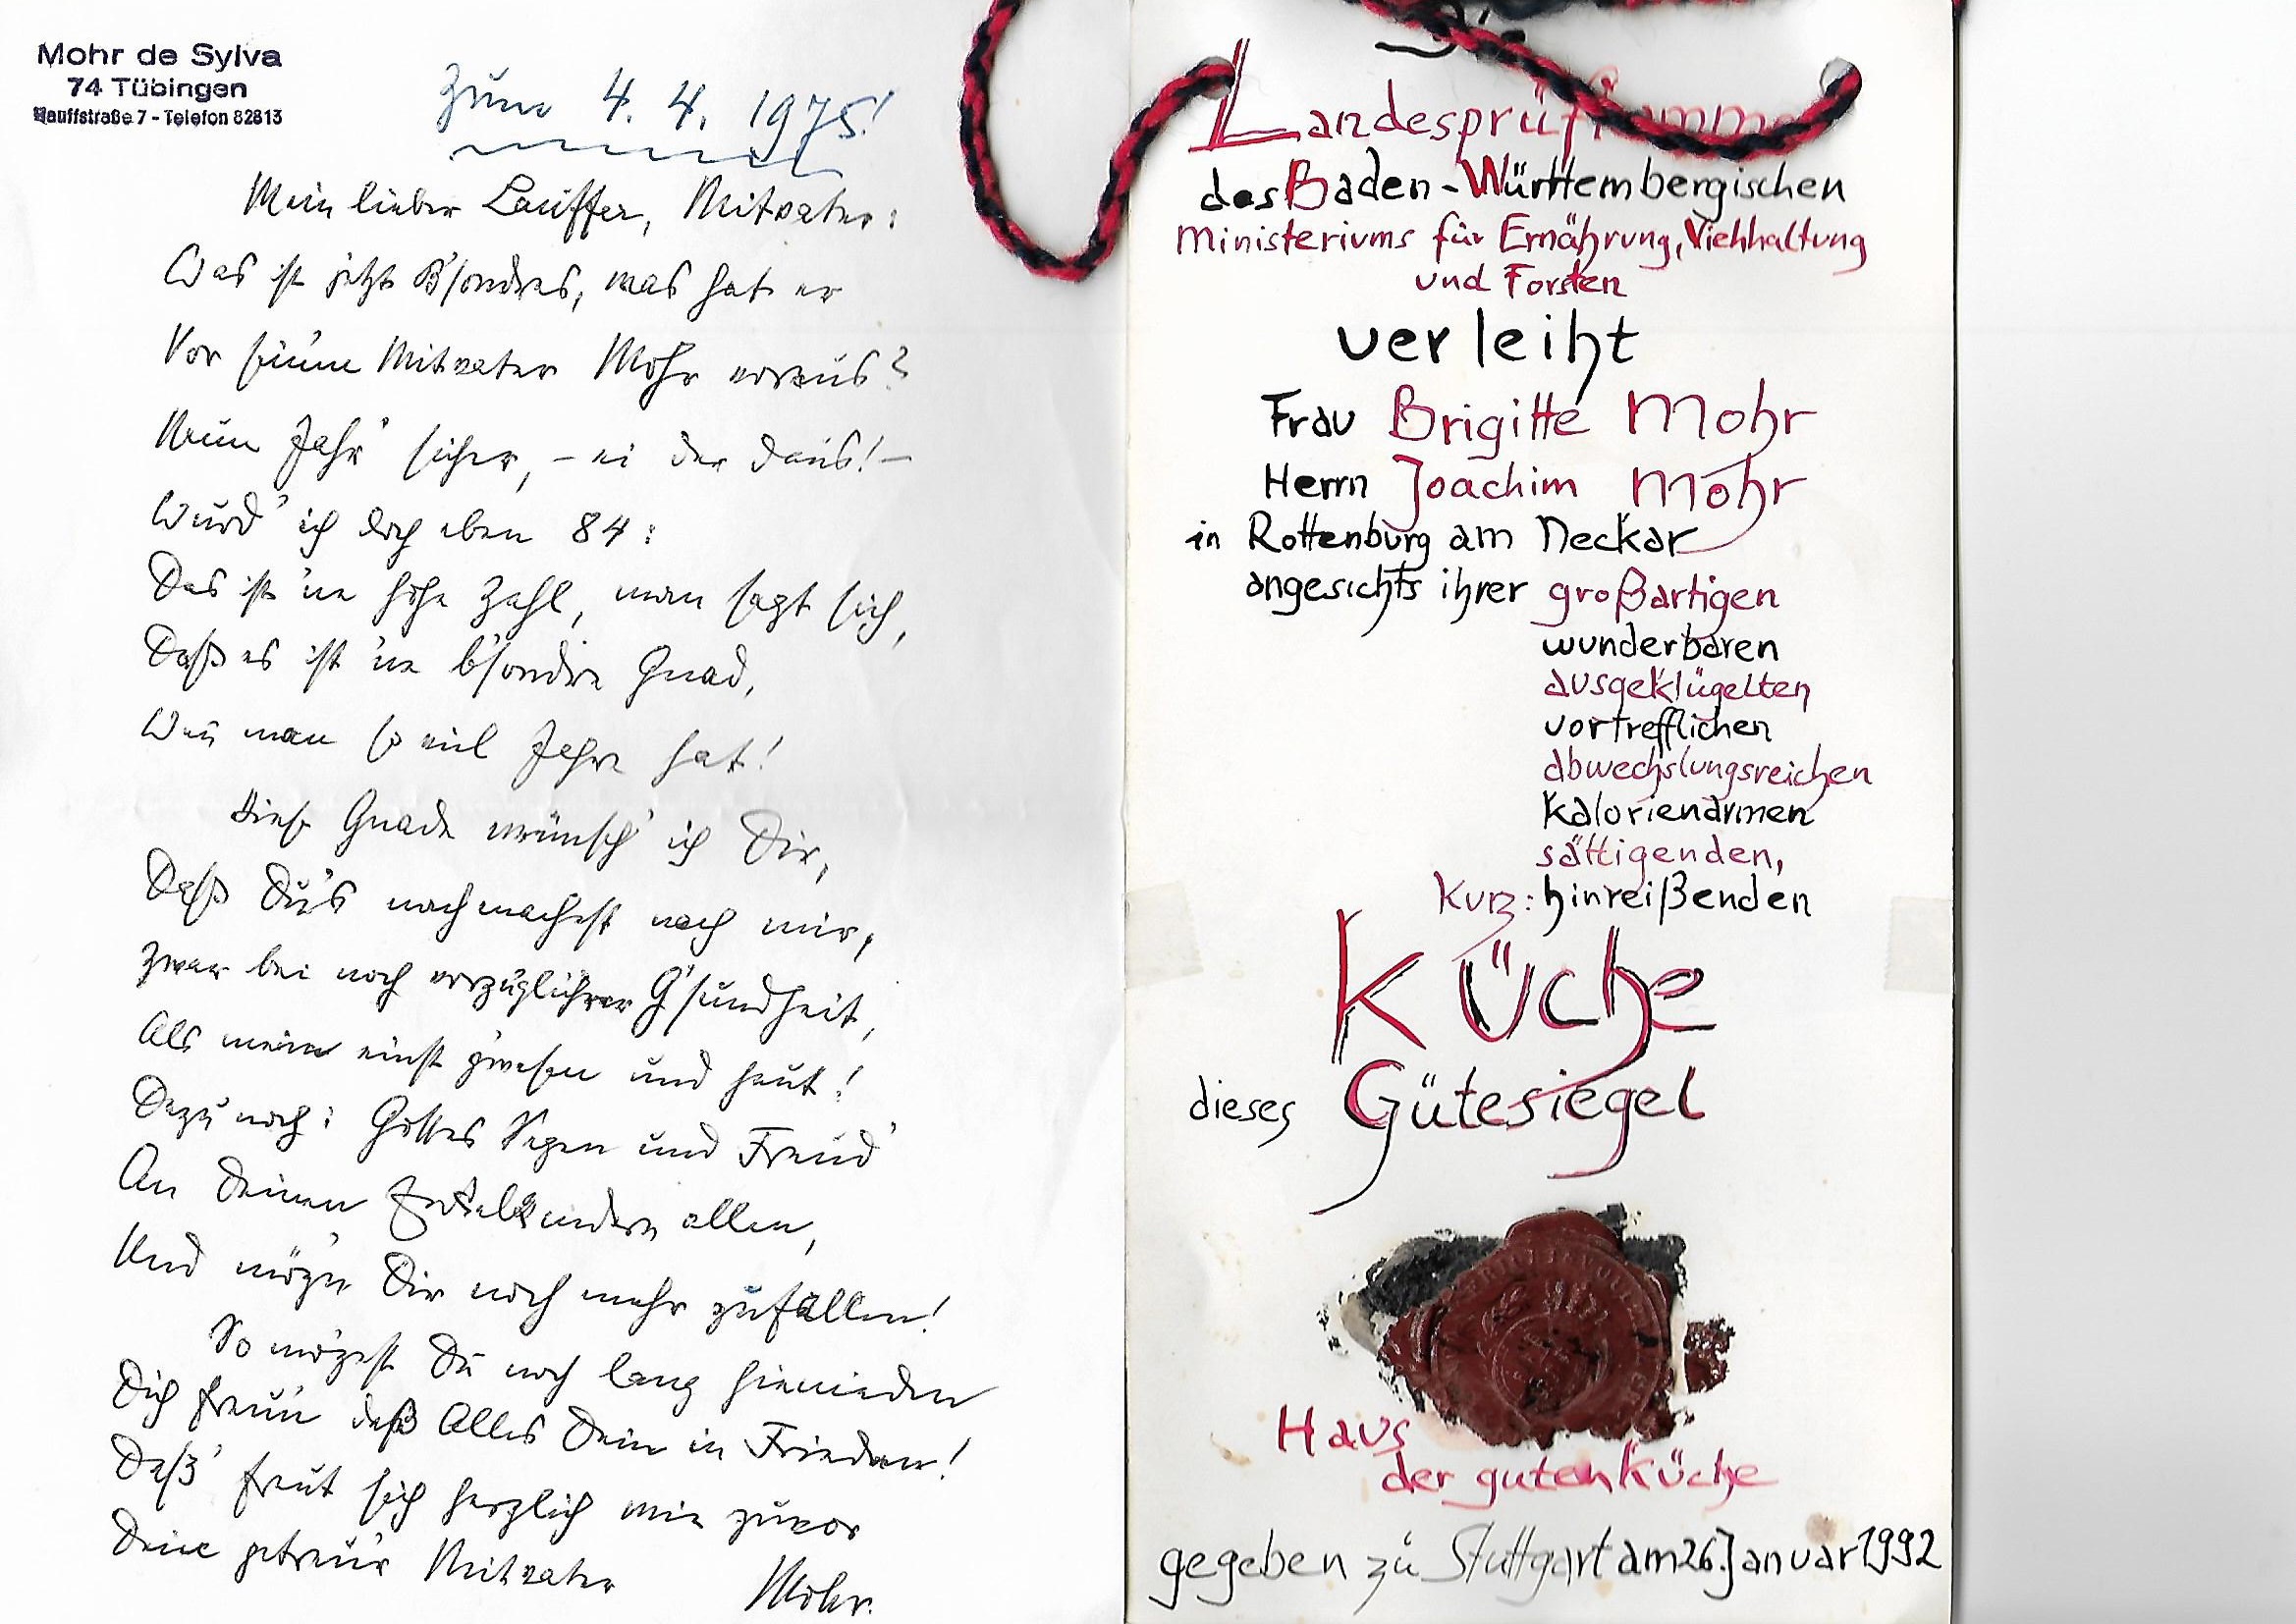 Mohr de Sylva
74 Tübingen
Hauffstraße 7 - Telefon 82813
Zum 4. 4. 1975!
Mein lieber Lauffer, Mitvater:
Was ist jetzt B'sondres, was hat er
Vor seinem Mitvater Mohr voraus?
Neun Jahr' sicher, – ei der daus! –
Wurd' ich doch eben 84:
Das ist 'ne hohe Zahl, man sagt sich,
Daß es ist 'ne b'sondre Gnad,
Wenn man so viel Jahre hat!
Diese Gnade wünsch' ich Dir,
Daß Du's nachmachest nach mir,
Zwar bei noch vorzüglichrer G'sundheit,
Als meine einst g'wesen und heut!
Dazu noch: Gottes Segen und Freud'
An Deinen Enkelkindern allen,
Und mög'n Dir noch mehr zufallen!
So mögest Du noch lang hienieden
Dich freu'n daß Alles Dein in Frieden!
Dess' freut sich herzlich wie zuvor
Dein getreu'r Mitvater
Mohr.
Landesprüf
des Baden-Württembergischen
Ministeriums für Ernährung, Viehhaltung
und Forsten
verleiht
Frau Brigitte Mohr
Herrn Joachim Mohr
in Rottenburg am Neckar
angesichts ihrer großartigen
wunderbaren
ausgeklügelten
vortrefflichen
abwechslungsreichen
kalorienarmen
sättigenden,
kurz: hinreißenden
Küche
dieses Gütesiegel
Haus
der guten Küche
gegeben zu Stuttgart am 26. Januar 1992